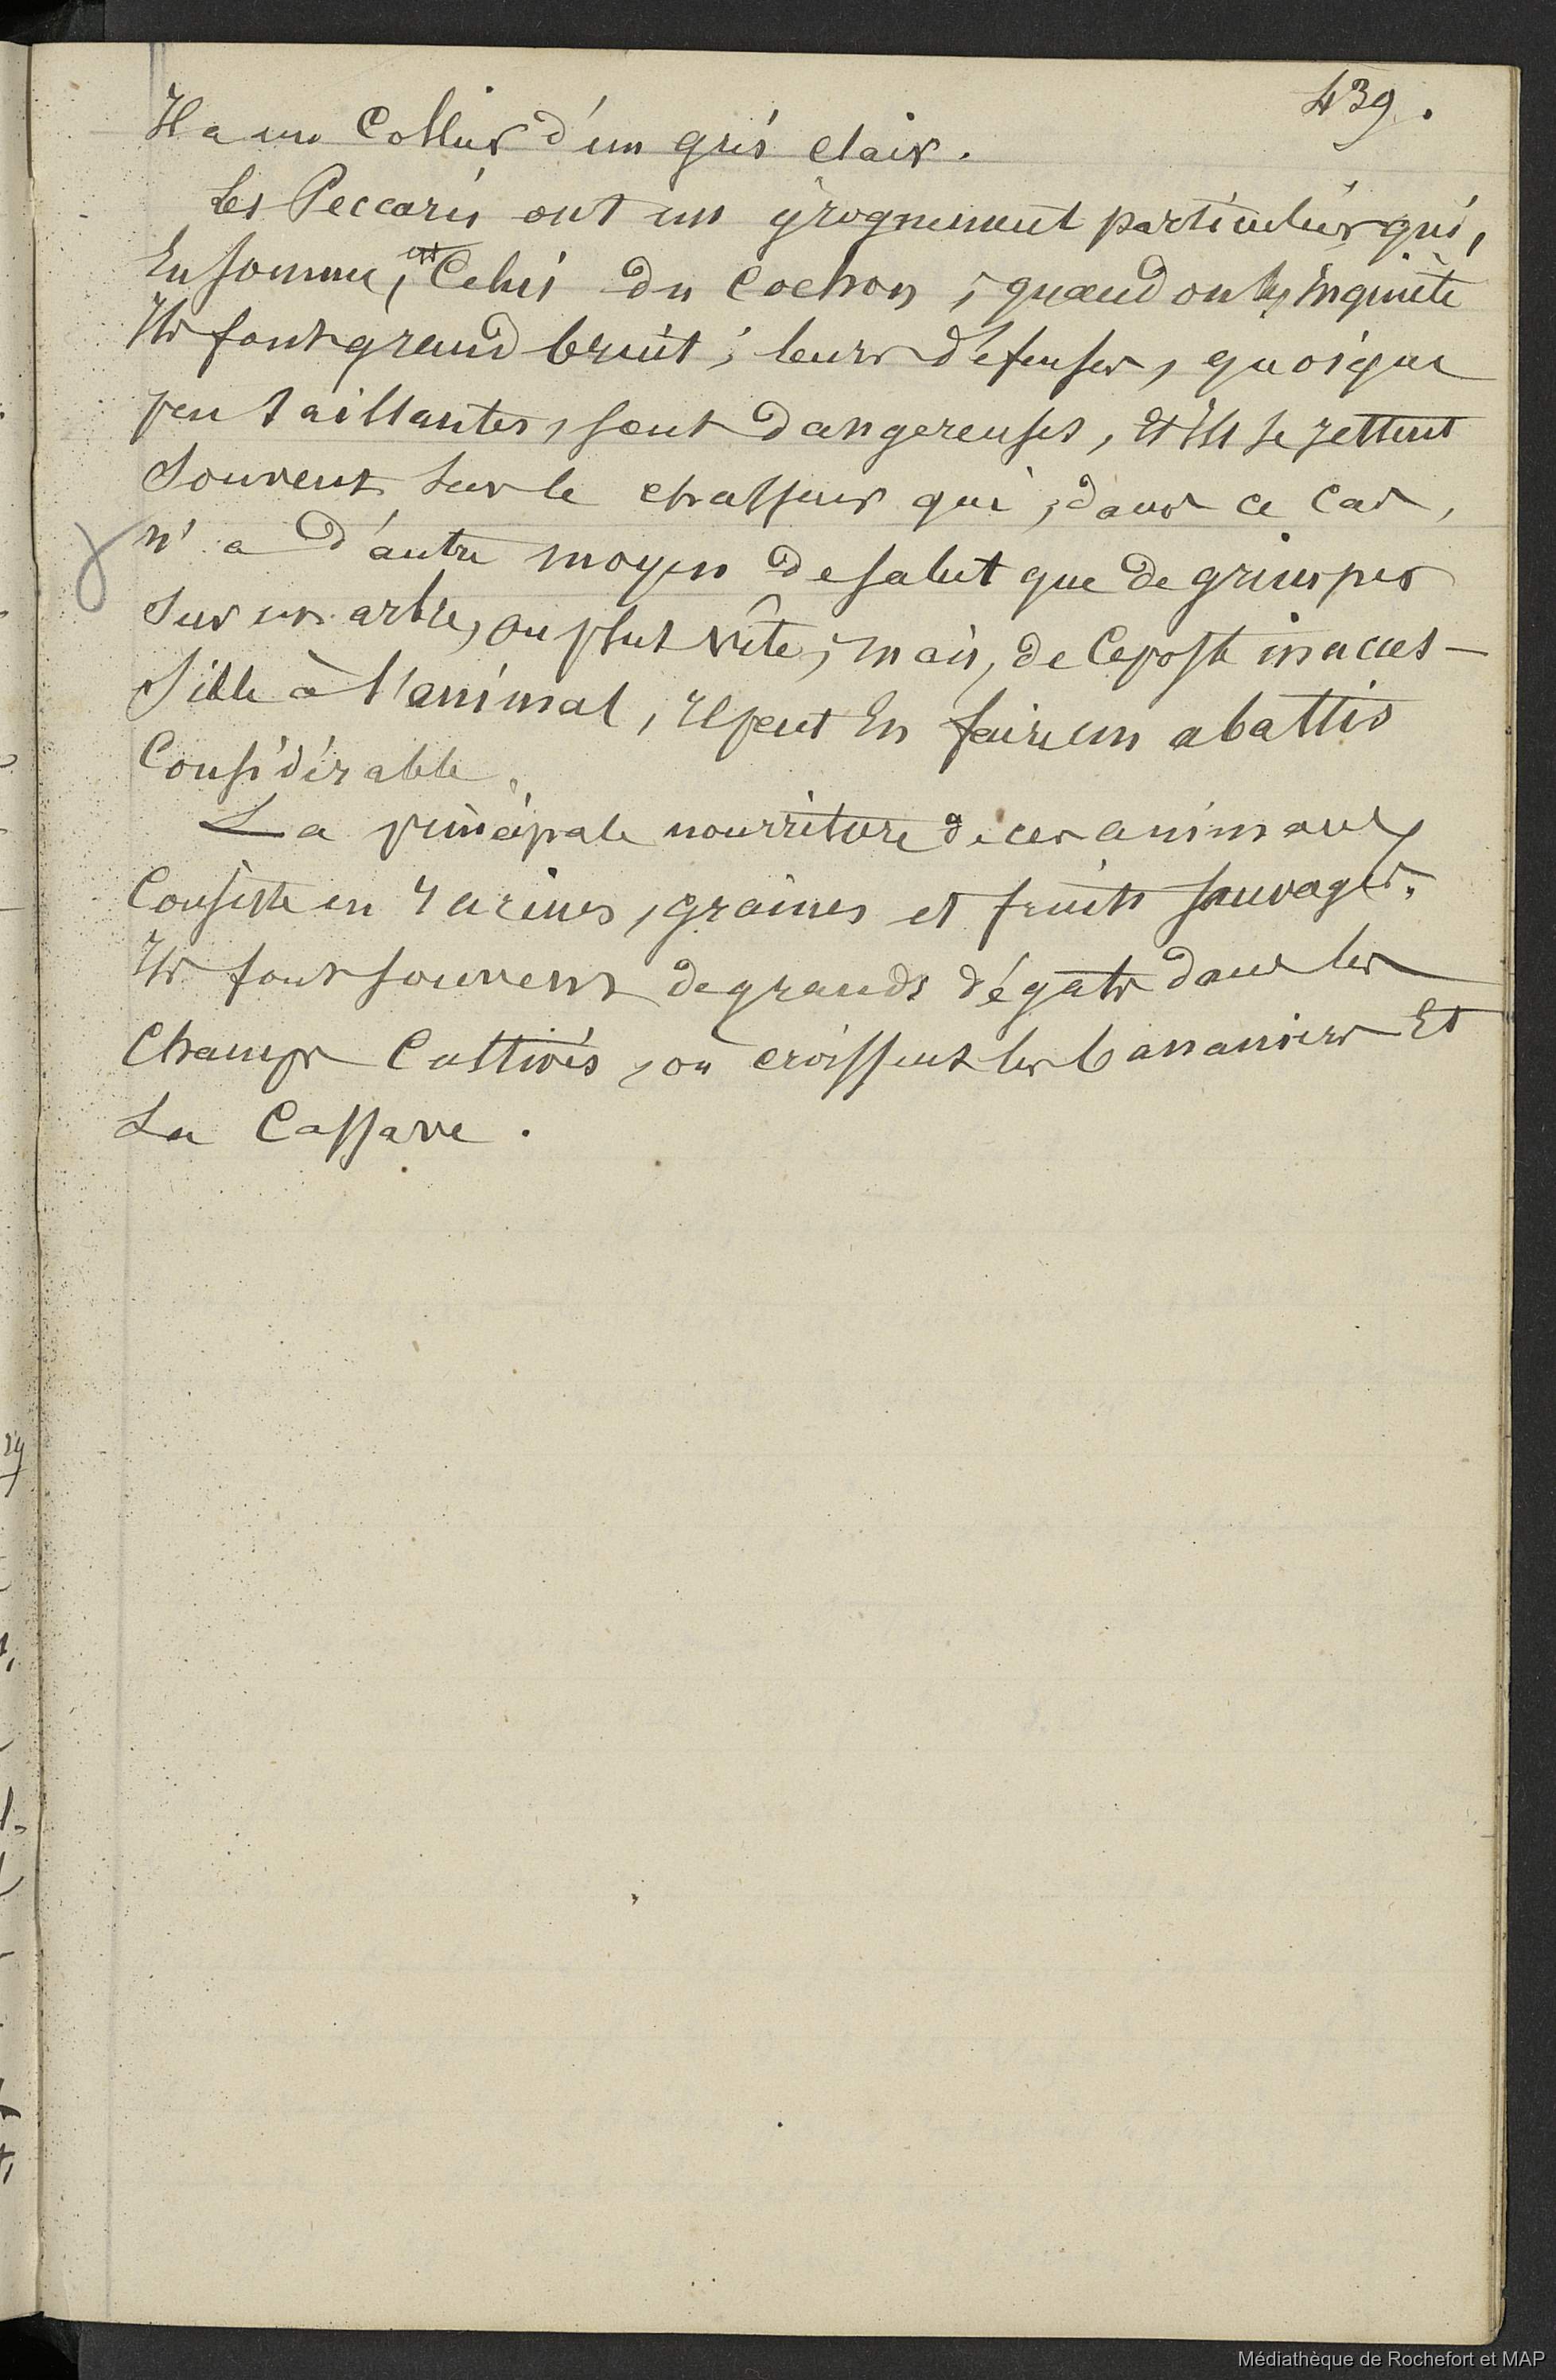 439.
Il a un Collier d'un gris clair.
Les Peccaris ont un grognement particulier qui,
En somme, est Celui du Cochon ; quand on les inquiète
Ils font grand bruit ; leurs défenses, quoique
peu saillantes, sont dangereuses, et ils se jettent
Souvent sur le chasseur qui, dans ce cas,
n'a d'autre moyen de salut que de grimper
Sur un arbre, au plus vîte ; mais, de ce poste inacces-
sible à l'animal, il peut en faire un abattis
Considérable.
La principale nourriture de ces animaux
Consiste en racines, graines et fruits sauvages.
Ils font souvent de grands dégats dans les
Champs Cultivés, ou croissent les bananiers Et
La Cassave.
Médiathèque de Rochefort et MAP